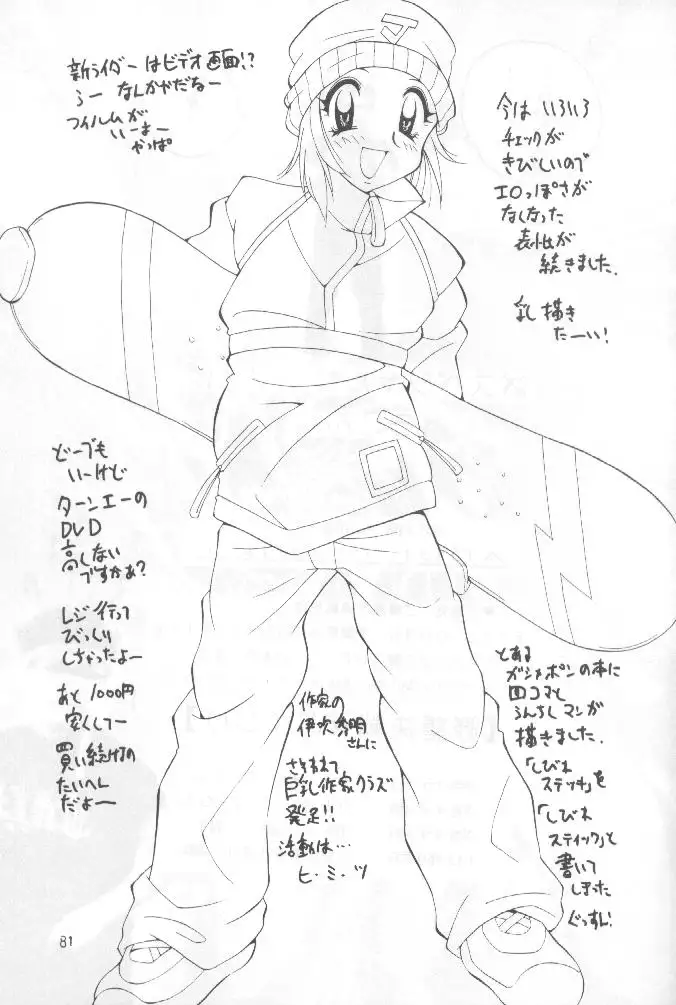 新ライダーはビデオ画面!?
うー なんかやだなー
フィルムが
いーよー
やっぱ
今は いろいろ
チェックが
きびしいので
エロっぽさが
なくなった
表紙が
続きました.
乳 描き
たーい!
どーでも
いーけど
ターンエーの
DVD
高くない
ですかぁ?
レジ行って
びっくり
しちゃったよー
あと1000円
安くしてー
買い続けるの
たいへん
だよー
作家の
伊吹秀明
さんに
さそわれて
巨乳作家クラブ
発足!!
活動は…
ヒ・ミ・ツ
とある
ガシャポンの本に
四コマと
マンガ
描きました.
「しびれ
ステッチ」を
「しびれ
スティック」と
書いて
しまった
ぐっすん!
J
81